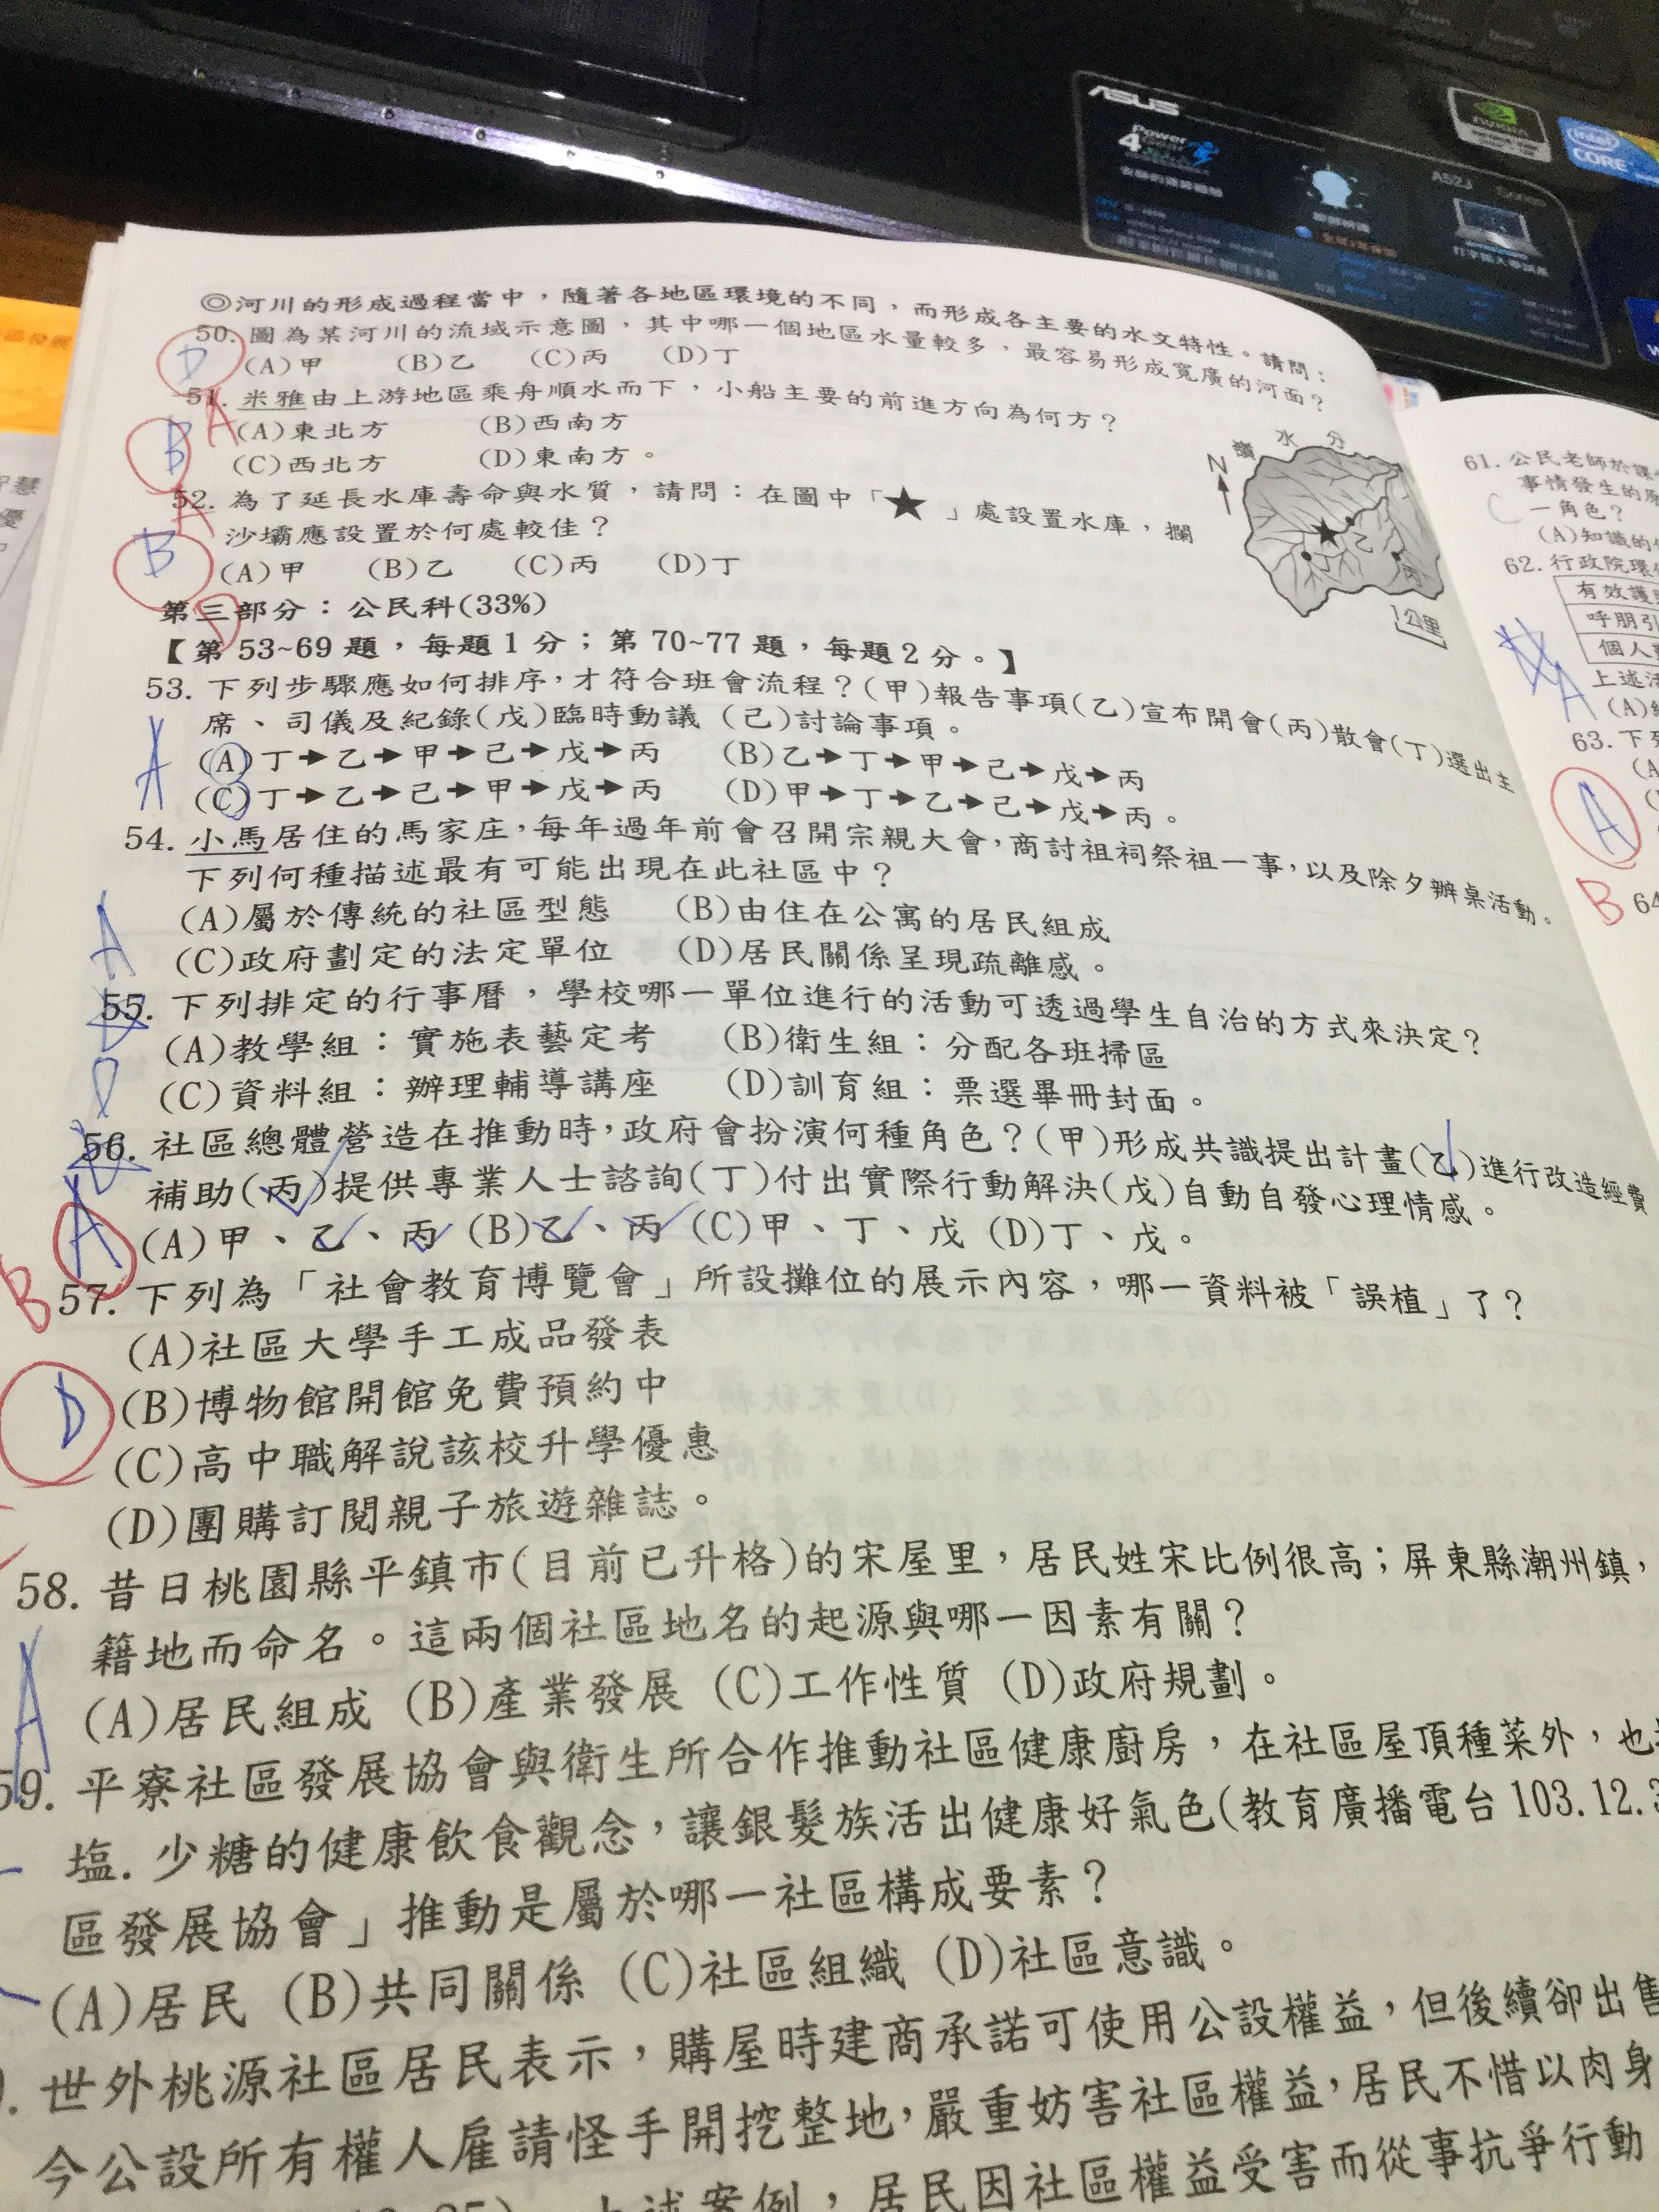 ASUS
Power
4
nVIDIA
intel
CORE
A52J Series
◎河川的形成過程當中，隨著各地區環境的不同，而形成各主要的水文特性。請問：
50. 圖為某河川的流域示意圖，其中哪一個地區水量較多，最容易形成寬廣的河面？
D
(A)甲 (B)乙 (C)丙 (D)丁
A
51. 米雅由上游地區乘舟順水而下，小船主要的前進方向為何方？
B
(A)東北方 (B)西南方
(C)西北方 (D)東南方。
A
52. 為了延長水庫壽命與水質，請問：在圖中「★」處設置水庫，攔
沙壩應設置於何處較佳？
B
(A)甲 (B)乙 (C)丙 (D)丁
D
分水嶺
N
乙
丙
1公里
第三部分：公民科(33%)
【第 53~69 題，每題 1 分；第 70~77 題，每題 2 分。】
53. 下列步驟應如何排序，才符合班會流程？(甲)報告事項(乙)宣布開會(丙)散會(丁)選出主
席、司儀及紀錄(戊)臨時動議 (己)討論事項。
A
(A)丁➔乙➔甲➔己➔戊➔丙 (B)乙➔丁➔甲➔己➔戊➔丙
(C)丁➔乙➔己➔甲➔戊➔丙 (D)甲➔丁➔乙➔己➔戊➔丙。
54. 小馬居住的馬家庄，每年過年前會召開宗親大會，商討祖祠祭祖一事，以及除夕辦桌活動。
下列何種描述最有可能出現在此社區中？
A
(A)屬於傳統的社區型態 (B)由住在公寓的居民組成
(C)政府劃定的法定單位 (D)居民關係呈現疏離感。
55. 下列排定的行事曆，學校哪一單位進行的活動可透過學生自治的方式來決定？
D
(A)教學組：實施表藝定考 (B)衛生組：分配各班掃區
(C)資料組：辦理輔導講座 (D)訓育組：票選畢冊封面。
56. 社區總體營造在推動時，政府會扮演何種角色？(甲)形成共識提出計畫(乙)進行改造經費
補助(丙)提供專業人士諮詢(丁)付出實際行動解決(戊)自動自發心理情感。
A
(A)甲、乙、丙 (B)乙、丙 (C)甲、丁、戊 (D)丁、戊。
B
57. 下列為「社會教育博覽會」所設攤位的展示內容，哪一資料被「誤植」了？
(A)社區大學手工成品發表
D
(B)博物館開館免費預約中
(C)高中職解說該校升學優惠
(D)團購訂閱親子旅遊雜誌。
58. 昔日桃園縣平鎮市(目前已升格)的宋屋里，居民姓宋比例很高；屏東縣潮州鎮，
籍地而命名。這兩個社區地名的起源與哪一因素有關？
A
(A)居民組成 (B)產業發展 (C)工作性質 (D)政府規劃。
59. 平寮社區發展協會與衛生所合作推動社區健康廚房，在社區屋頂種菜外，也
塩.少糖的健康飲食觀念，讓銀髮族活出健康好氣色(教育廣播電台 103.12.3
區發展協會」推動是屬於哪一社區構成要素？
(A)居民 (B)共同關係 (C)社區組織 (D)社區意識。
世外桃源社區居民表示，購屋時建商承諾可使用公設權益，但後續卻出售
今公設所有權人雇請怪手開挖整地，嚴重妨害社區權益，居民不惜以肉身
上述案例，居民因社區權益受害而從事抗爭行動
61. 公民老師於課
事情發生的原
C
一角色？
(A)知識的
62. 行政院環
有效護
呼朋引
個人
上述活
A
(A)
63. 下列
(A
A
B
64